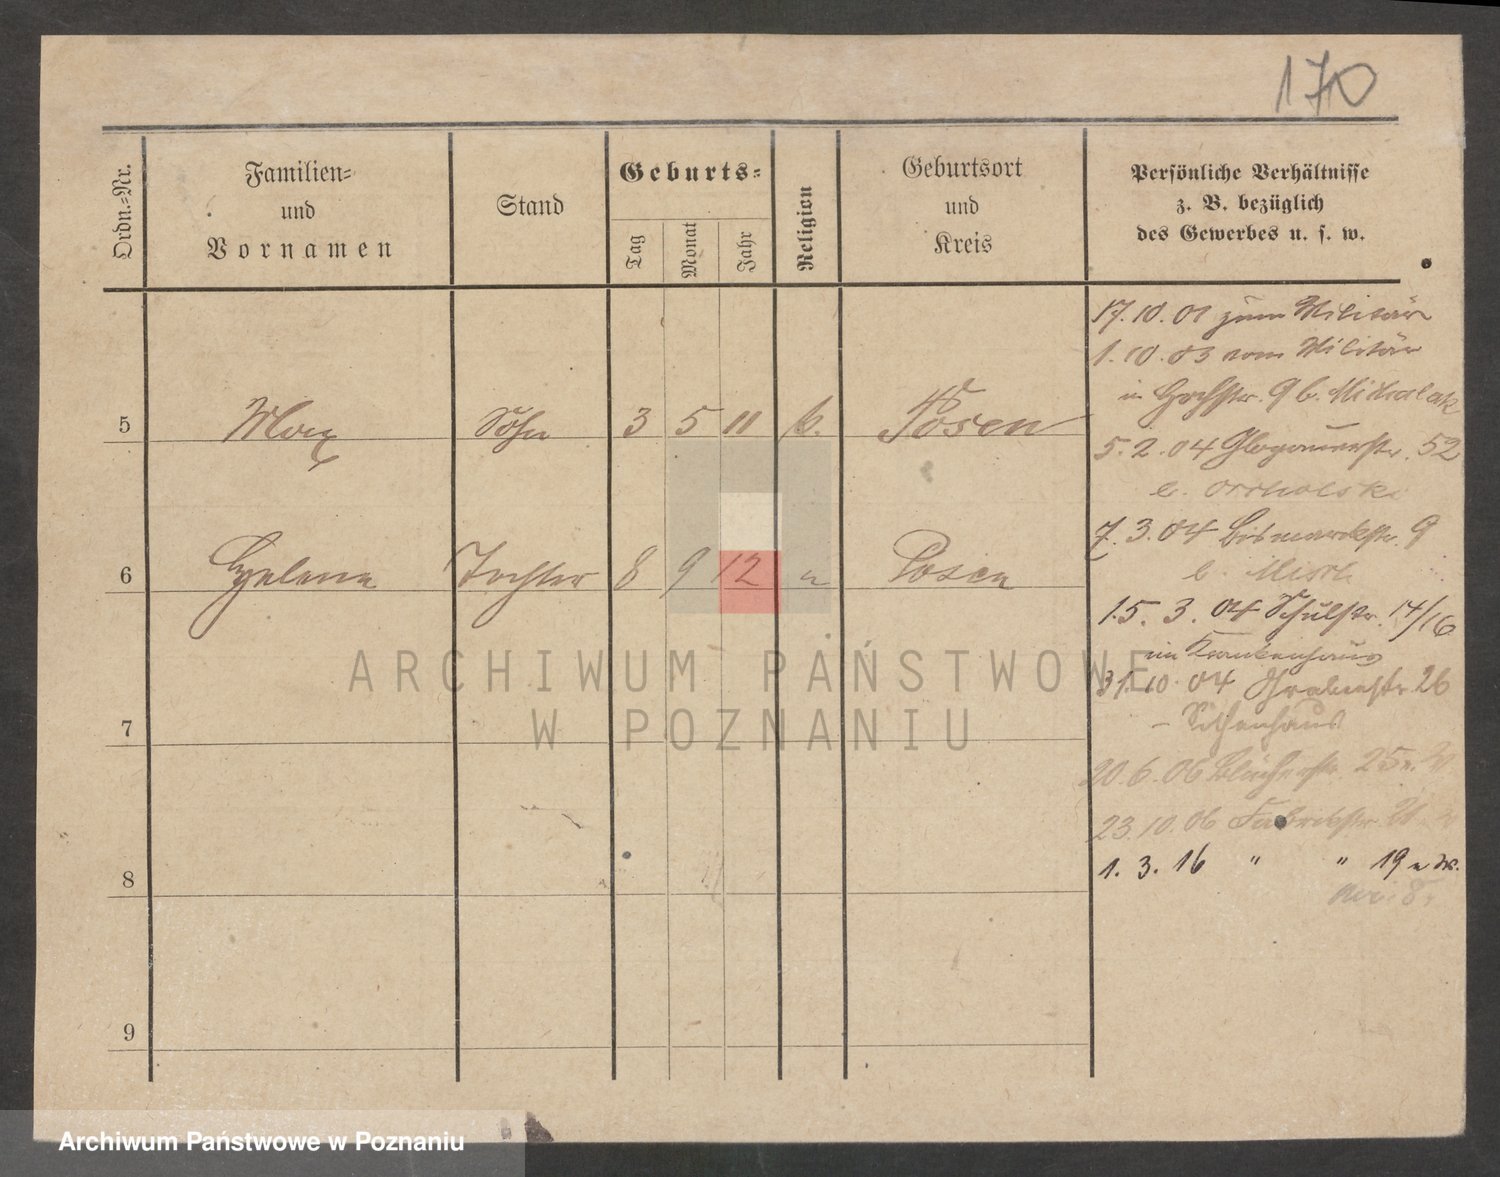 170
Ordn.-Nr.
Familien-
und
Vornamen
Stand
Geburts-
Tag
Monat
Jahr
Religion
Geburtsort
und
Kreis
Persönliche Verhältnisse
z. B. bezüglich
des Gewerbes u. s. w.
17.10.01 zum Militär
1.10.03 vom Militär
in 9 b. Michalak
5 Max Sohn 3 5 11 k. Posen
5.2.04 Glogauerstr. 52
b.
7.3.04 Bismarckstr. 9
6 Helene Tochter 8 9 12 " Posen
b.
15.3.04 Schulstr. 14/16
im Krankenhaus
31.10.04 Grabenstr. 26
7
20.6.06 Blücherstr. 25
23.10.06 Fabrikstr.
1.3.16 " " 19
8
9
ARCHIWUM PAŃSTWOWE
W POZNANIU
Archiwum Państwowe w Poznaniu